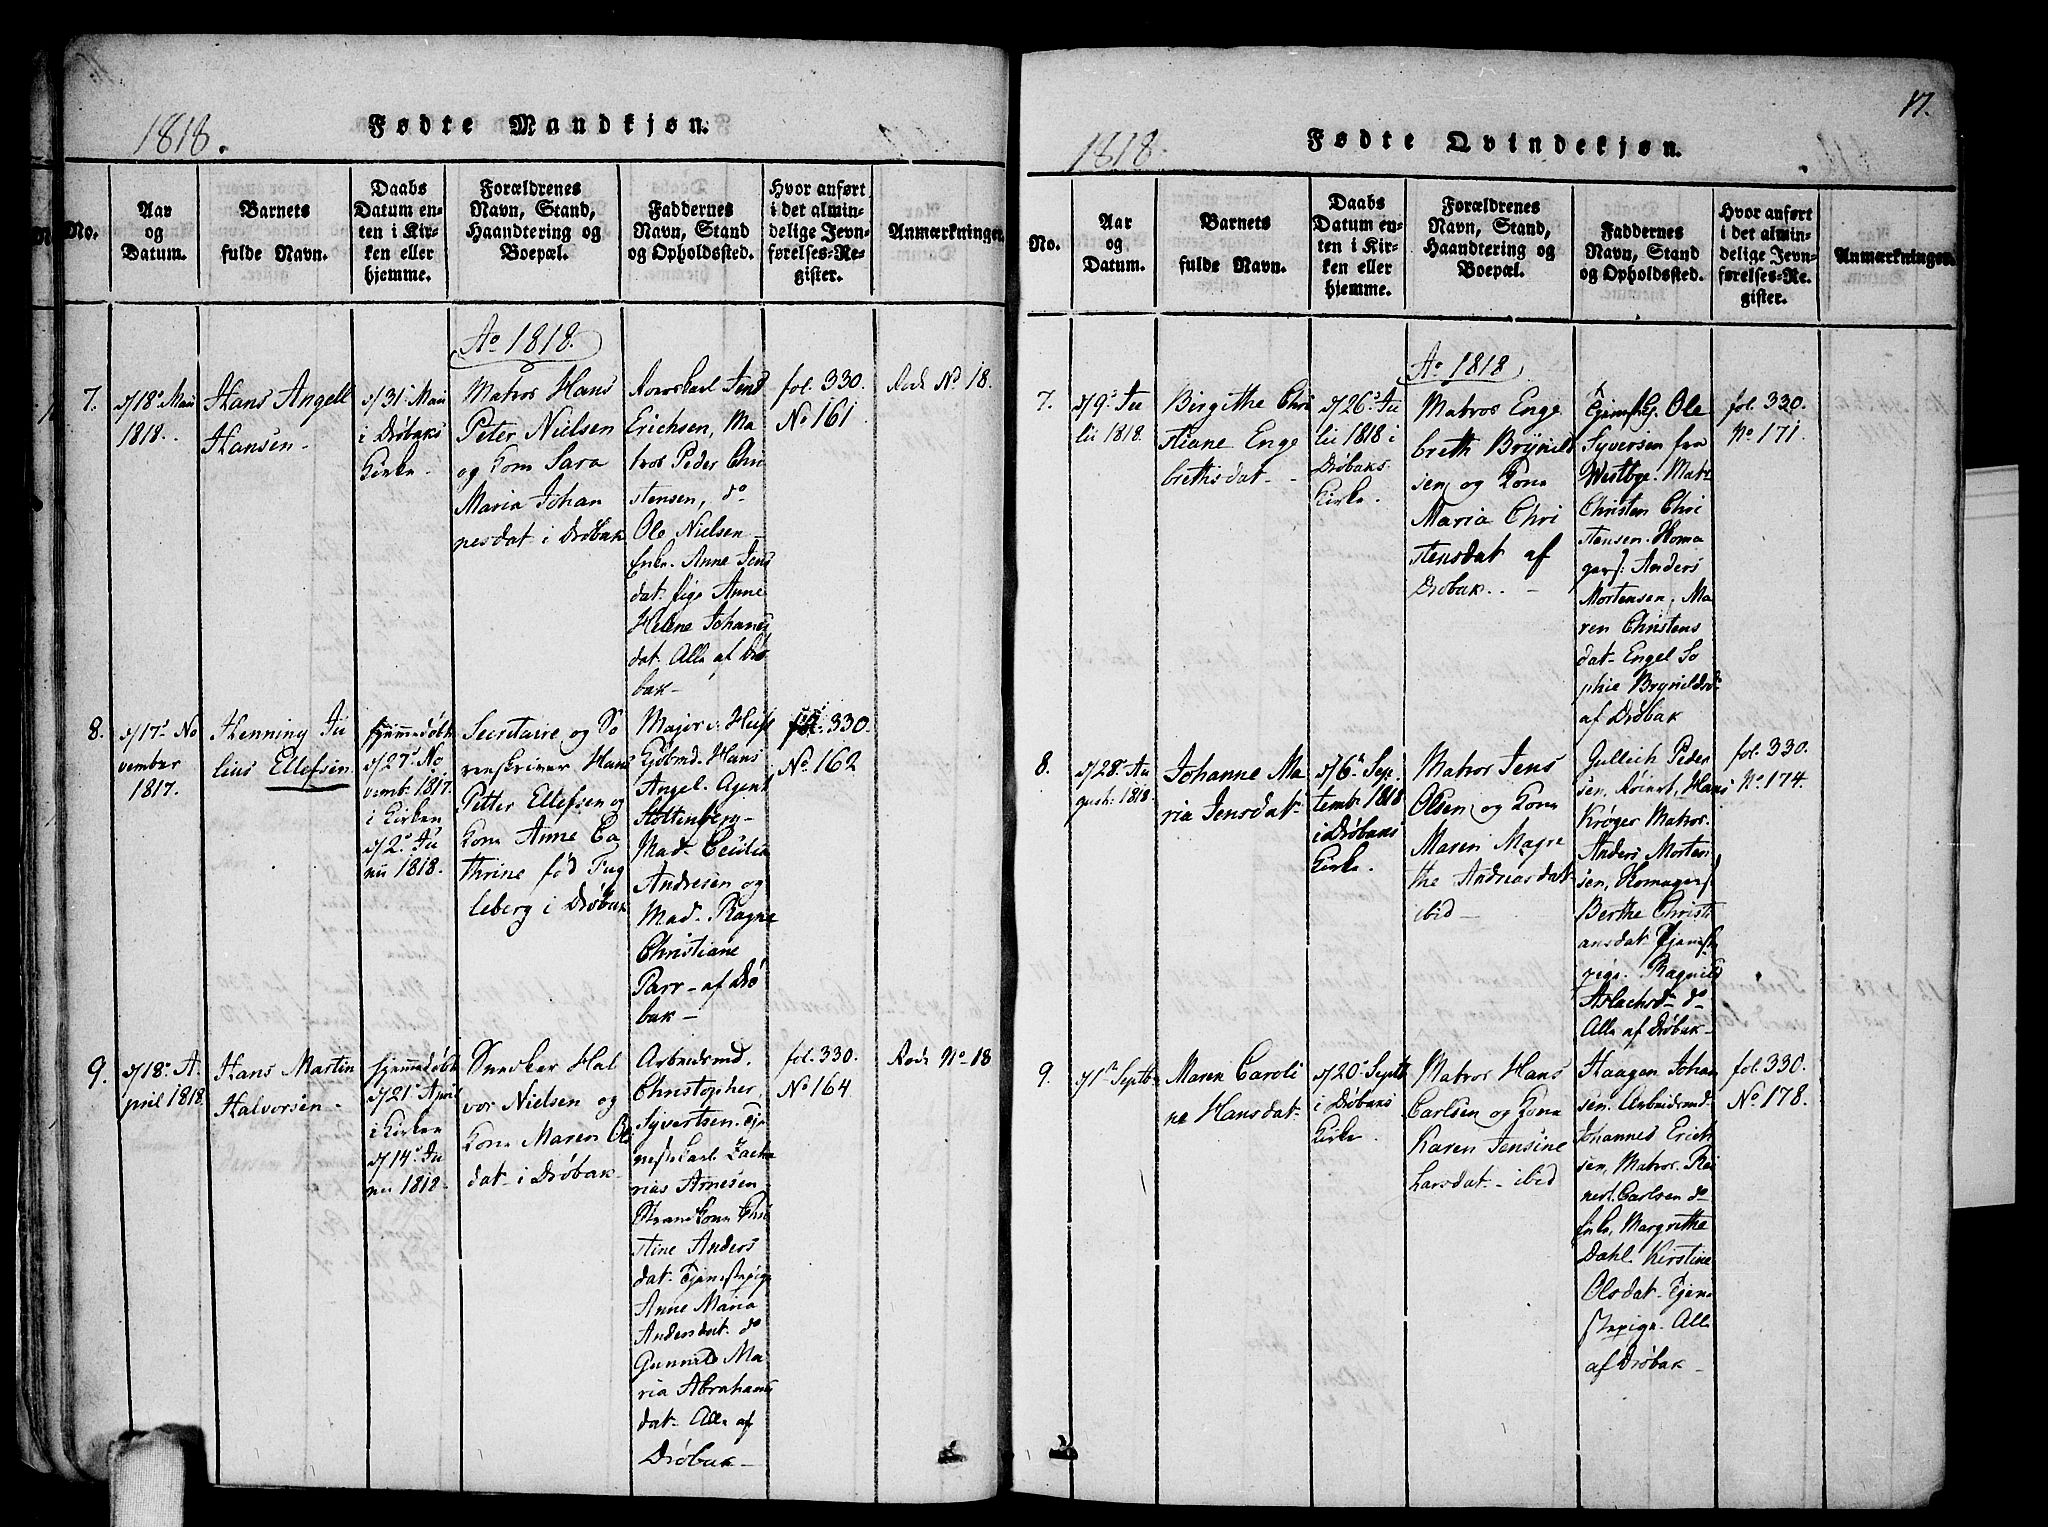 1818.
Fødte Mandkjøn.
No.
Aar
og
Datum.
Barnets
fulde Navn.
Daabs
Datum en-
ten i Kir-
ken eller
hjemme.
Forældrenes
Navn, Stand,
Haandtering og
Boepæl.
Faddernes
Navn, Stand
og Opholdssted.
Hvor anført
i det almin-
delige Jevn-
førelses-Re-
gister.
Anmærkninger.
Ao 1818.
7.
d/18 Maii
1818.
Hans Angell
Hansen
d/31 Maii
i Drøbaks
Kirke
Matros Hans
Peter Nielsen
og Kone Sara
Maria Johan
nesdat i Drøbak
Jens
Erichsen, Ma
tros Peder Chri
stensen, do
Ole Nielsen
Enke Anne Jens
dat Pige Anne
Helene Johanes
dat Alle af Drø
bak
fol. 330.
No 161
No 18.
8.
d/17 No
vember
1817.
Henning Ju
lius Ellefsen
hjemmedøbt
d/27 No
vemb. 1817.
i Kirken
d/2 Ju
nii 1818.
Secretaire og So
renskriver Hans
Petter Ellefsen og
Kone Anne Ca
thrine fød Fug
leberg i Drøbak
Major v.
Hans
Angel. Agent
Stoltenberg
Mad. Cecilia
Andresen og
Mad. Ragne
Christiane
Parr af Drø
bak
fol. 330.
No 162
9.
d/18 A
pril 1818.
Hans Martin
Halvorsen
hjemmedøbt
d/21 April
i Kirken
d/14 Ju
nii 1818
Snedker Hal
vor Nielsen og
Kone Maren Ols
dat i Drøbak
Arbeidsmd.
Christopher
Syvertsen. Tje
nestekarl Zacha
rias Arnesen
Kone Chri
stine Anders
dat Tjenestepige
Anne Maria
Andersdat do
Gunnild Ma
ria Abrahams
dat Alle af
Drøbak
fol. 330.
No 164
No 18
17.
1818.
Fødte Qvindekjøn.
No.
Aar
og
Datum.
Barnets
fulde Navn.
Daabs
Datum en-
ten i Kir-
ken eller
hjemme.
Forældrenes
Navn, Stand,
Haandtering og
Boepæl.
Faddernes
Navn, Stand
og Opholdssted.
Hvor anført
i det almin-
delige Jevn-
førelses-Re-
gister.
Anmærkninger.
Ao 1818.
7.
d/9 Ju
lii 1818.
Birgithe Chri
stiane Enge
brethsdat
d/26 Ju
lii 1818 i
Drøbaks
Kirke.
Matros Enge
breth Brynild
sen og Kone
Maria Chri
stensdat af
Drøbak.
Ole
Syversen fra
Westbye. Matr
Christen Chri
stensen.
Anders
Mortensen, Ma
ren Christens
dat Engel So
phie Brynildsd
af Drøbak
fol. 330.
No 171.
8.
d/28 Au
gust. 1818
Johanne Ma
ria Jensdat
d/6 Sep
tembr 1818
i Drøbaks
Kirke.
Matros Jens
Olsen og Kone
Maren Magre
the Andreasdat
ibid
Gullich Peder
sen, Hans
Krøger Matros.
Anders Morten
sen,
Berthe Christi
ansdat Tjeneste
pige. Ragnild
Aslachsd do
Alle af Drøbak
fol. 330.
No 174.
9.
d/1 Septbr
Maren Caroli
ne Hansdat
d/20 Septb
i Drøbaks
Kirke.
Matros Hans
Carlsen og Kone
Karen Jensine
Larsdat ibid
Haagen Johan
sen. Arbeidsmd
Johannes Erich
sen, Matros. Rei
nert Carlsen do
Enke, Margrethe
Dahl. Kerstine
Olsdat Tjene
stepige. Alle
af Drøbak
fol. 330.
No 178.